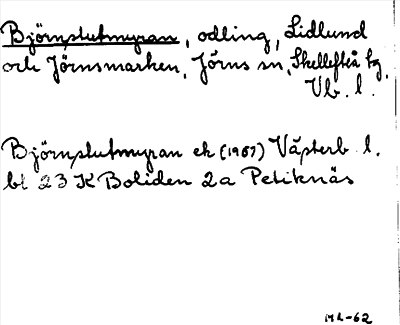 Björnslutmyran, odling, Lidlund
och Jörnsmarken, Jörns sn, Skellefteå tg,
Vb. l.
Björnslutmyran ek (1967) Västerb. l.
bl 23 K Boliden 2a Petiknäs
ML-62